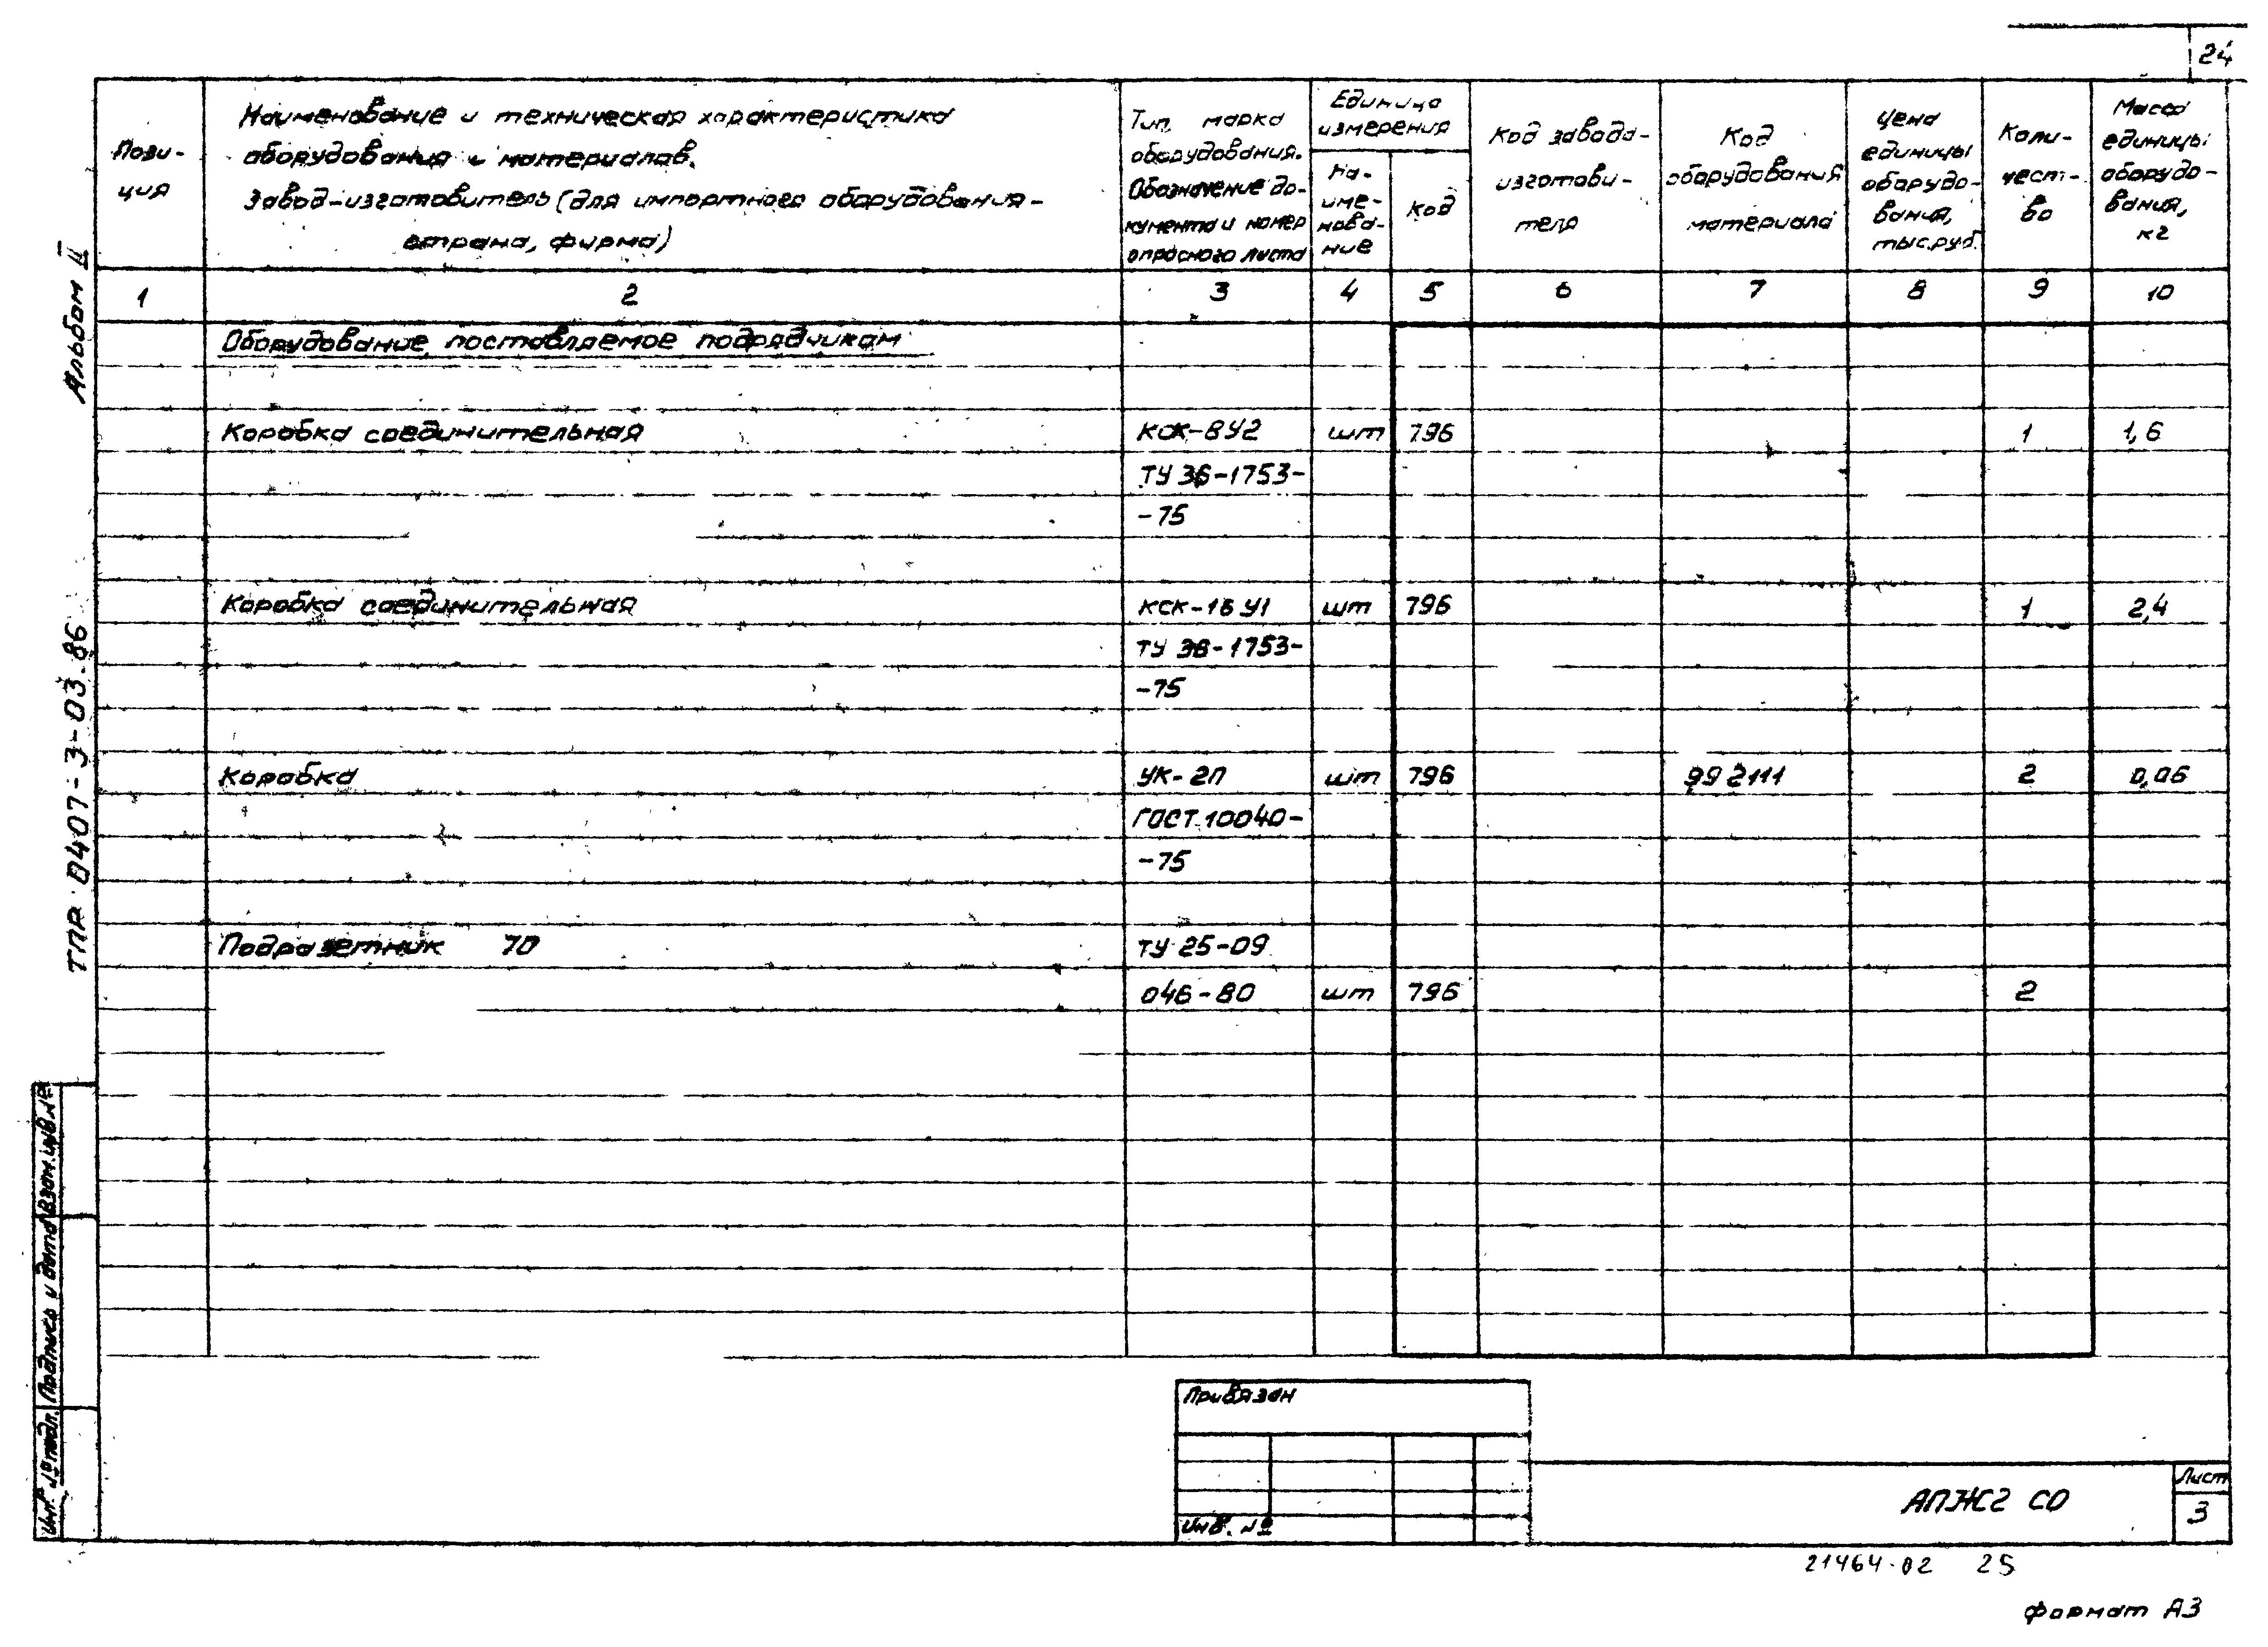 24
Пози-
ция
Наименование и техническая характеристика
оборудования и материалов.
Завод-изготовитель (для импортного оборудования-
страна, фирма)
Тип, марка
оборудования.
Обозначение до-
кумента и номер
опросного листа
Единица
измерения
На-
име-
нова-
ние
Код
Код завода-
изготови-
теля
Код
оборудования
материала
Цена
единицы
оборудо-
вания,
тыс.руб.
Коли-
чест-
во
Масса
единицы
оборудо-
вания,
кг
1 2 3 4 5 6 7 8 9 10
Оборудование, поставляемое подрядчикам
Коробка соединительная КСК-8У2 шт 796 1 1,6
ТУ 36-1753-
-75
Коробка соединительная КСК-16У1 шт 796 1 2,4
ТУ 36-1753-
-75
Коробка УК-2П шт 796 992111 2 0,06
ГОСТ 10040-
-75
Подрозетник 70 ТУ 25-09
046-80 шт 796 2
Альбом II
ТПР 0407-3-03.86
Взам.инв.№
Подпись и дата
Инв. № подл.
Привязан
Инв. №
АПЖ2 СО
Лист
3
21464-02 25
Формат А3